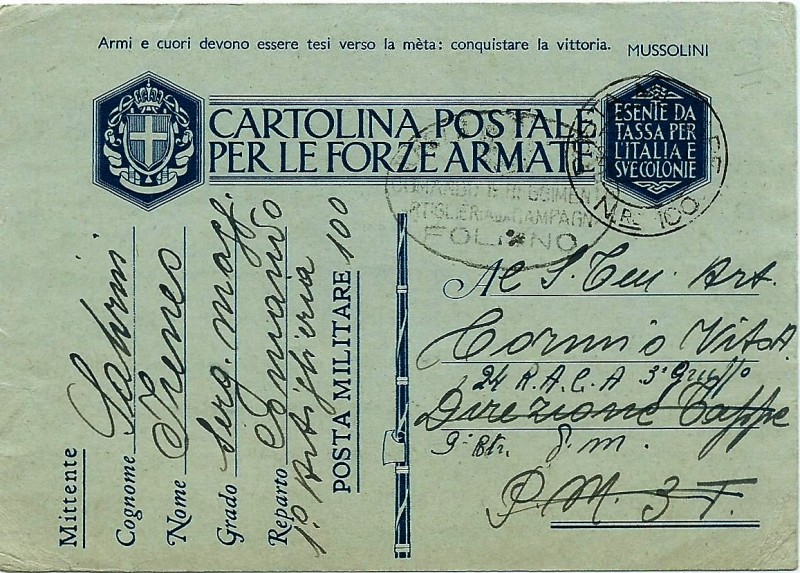 Armi e cuori devono essere tesi verso la mèta: conquistare la vittoria. MUSSOLINI
CARTOLINA POSTALE
PER LE FORZE ARMATE
ESENTE DA
TASSA PER
L'ITALIA E
SVE COLONIE
COMANDO REGGIMEN
ARTIGLIERIA CAMPAGN
FOLIGNO
N.Ro 100
Mittente
Cognome Salvini
Nome Ireneo
Grado Serg. magg.
Reparto Comando
1º Artiglieria
POSTA MILITARE 100
Al S. Ten. Art.
Cormio Vito
24 R.A.C.A 3º Gruppo
Direzione Tappe
9ª Btr. P.M.
P.M. 3 T.